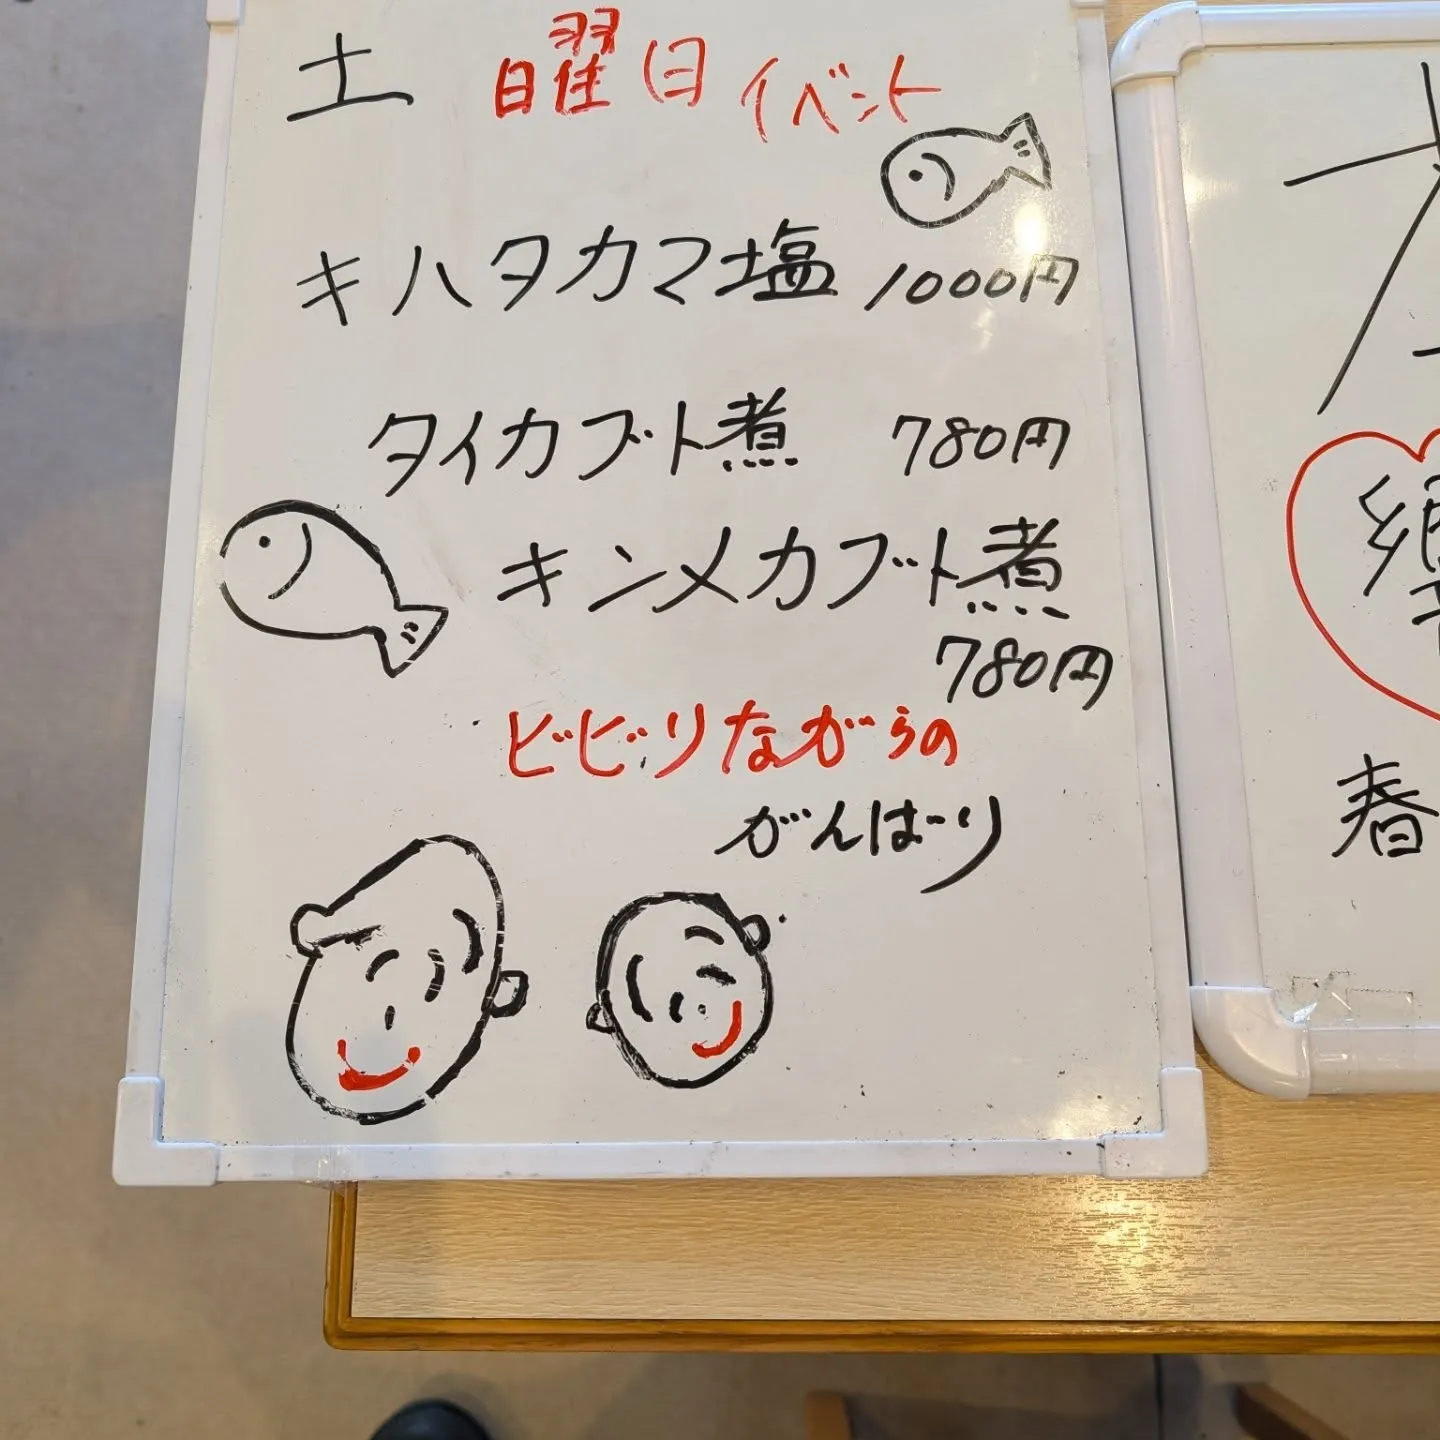 土曜日イベント
キハタカマ塩 1000円
タイカブト煮 780円
キンメカブト煮
780円
ビビリながらの
がんばり
響
春